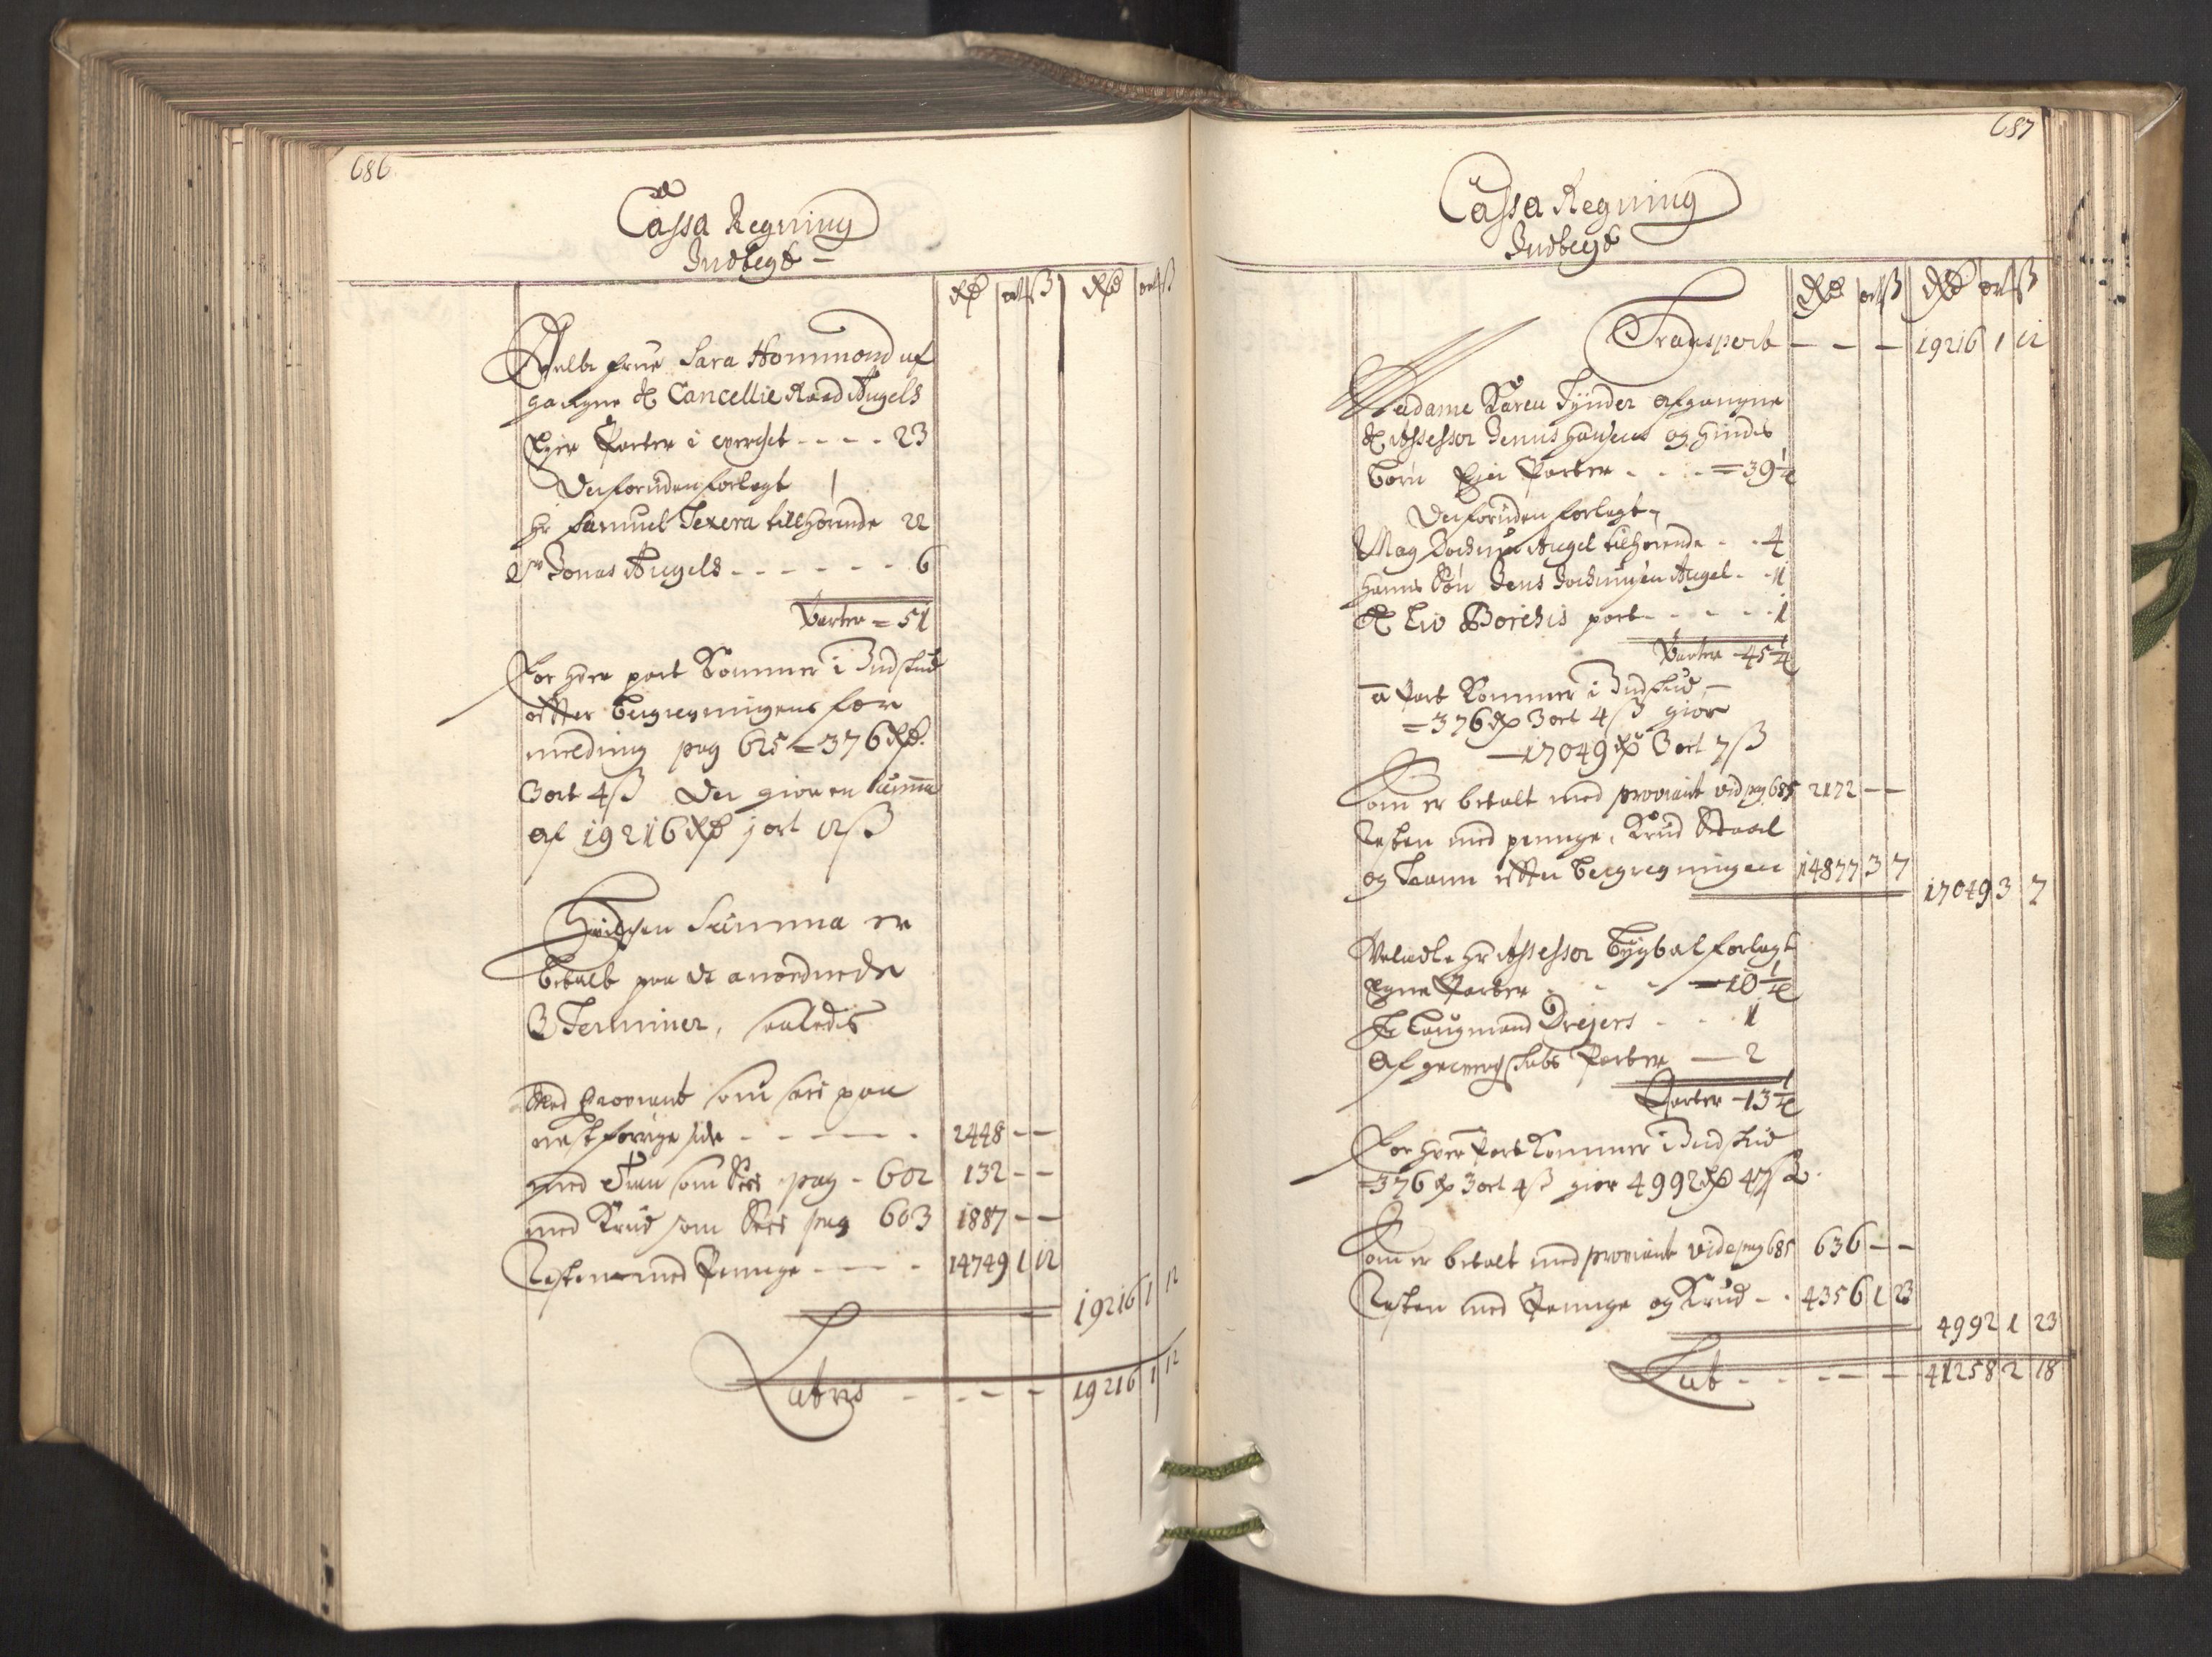 686
Cassa Regning
Indtegt
Rd ort ß Rd ort ß
Velb. Frue Sara Hommond af
gangne Cancellie Raad Angels
Egne Parter i - - - - 23
Derforuden forlagt
Hr Samuel Texera tillhörende 22
Sr Jonas Angels - - - - - - 6
Parter = 51
For hver part Kommer i Indskud
efter Beregningens for
melding pag 625 = 376 Rd.
3 ort 4 ß Der giör en Summa
af 19216 Rd 1 ort 12 ß
Hvilchen Summa er
betalt paa de anordnede
3 Terminer, saaledis
Med Proviant som sees paa
nest forrige side - - - - - 2448 - -
med Tran som Sees pag - 602 132 - -
med Krud som Sees pag 603 1887 - -
Resten med Penge - - - - 14749 1 12
19216 1 12
Lateris - - - - 19216 1 12
687
Cassa Regning
Indtegt
Rd ort ß Rd ort ß
Transport - - - 19216 1 12
Madame Karen Tÿnder afgangne
Assessor Jenns Hansens og hindes
Börn Egne Parter - - - = 39 1/4
Derforuden forlagt
Mag Jochum Angel tilhörende - - 4
Hanns Sön Jens Jochumsen Angel - - 1
Borchis part - - - - - 1
Parter - 45 1/4
a Part Kommer i Indskud -
= 376 Rd 3 ort 4 ß giör
- 17049 Rd 3 ort 7 ß
Som er betalt med proviant vid pag 685 2172 - -
Resten med penge, Krud Staal
og efter Beregningen 14877 3 7
17049 3 7
Veledle Hr Assessor Bÿgbal forlagt
Egne Parter - - - 10 1/4
Laugmand Drejers - - 1
Af Parter - 2
Parter - 13 1/4
For hver Part Kommer i Indskud
- 376 Rd 3 ort 4 ß giör 4992 Rd 47 ß
Som er betalt med proviant vide pag 685 636 - -
Resten med Penge og Krud - - 4356 1 23
4992 1 23
Lat - - - - - 41258 2 18